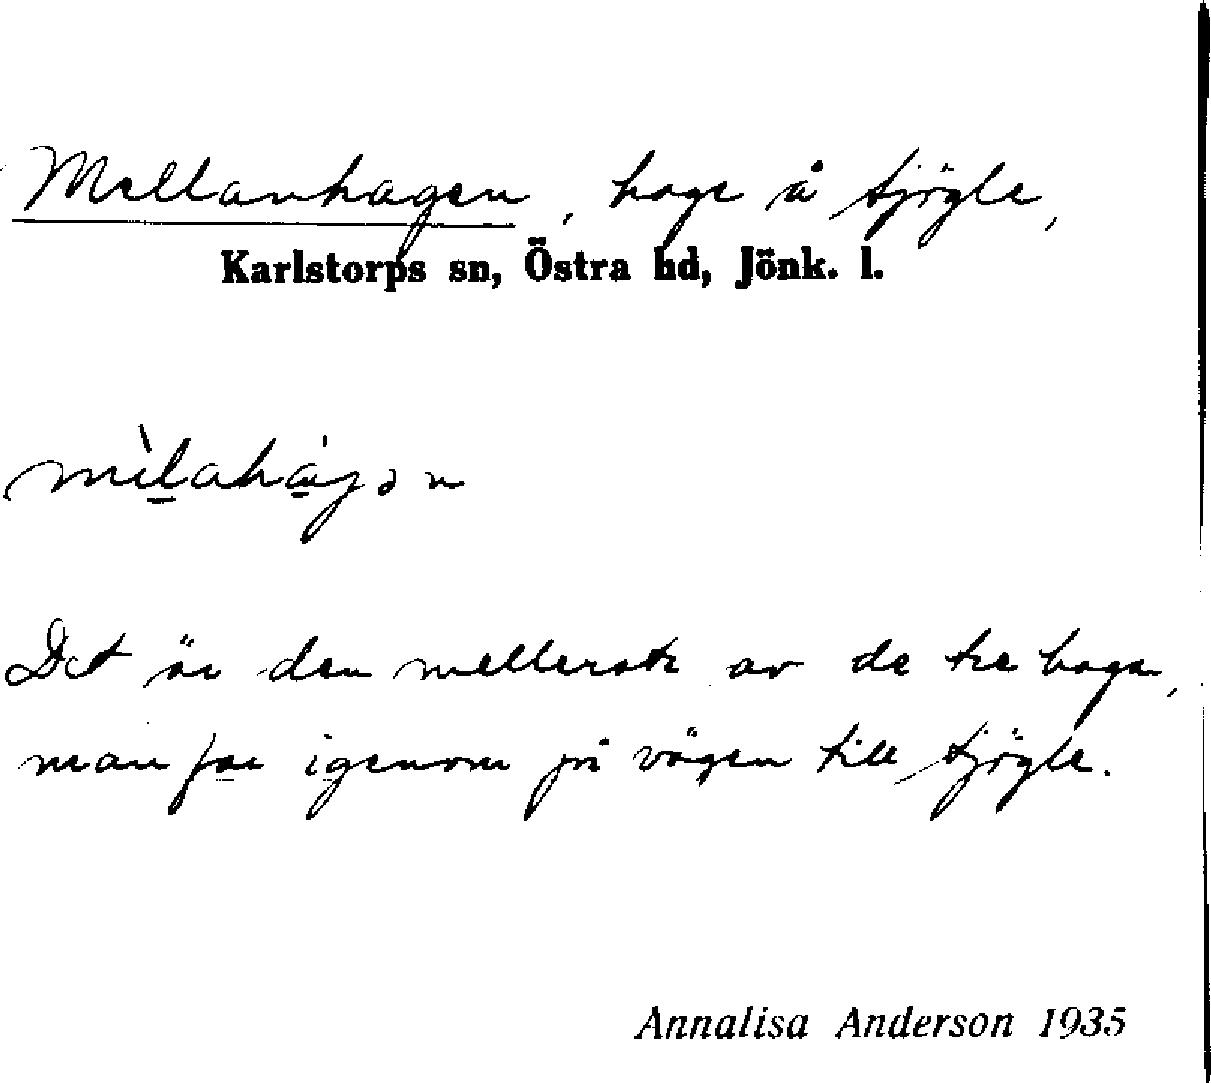 Mellanhagen, hage å Sjögle,
Karlstorps sn, Östra hd, Jönk. l.
Det är den mellersta av de tre haga,
man far igenom på vägen till Sjögle.
Annalisa Anderson 1935